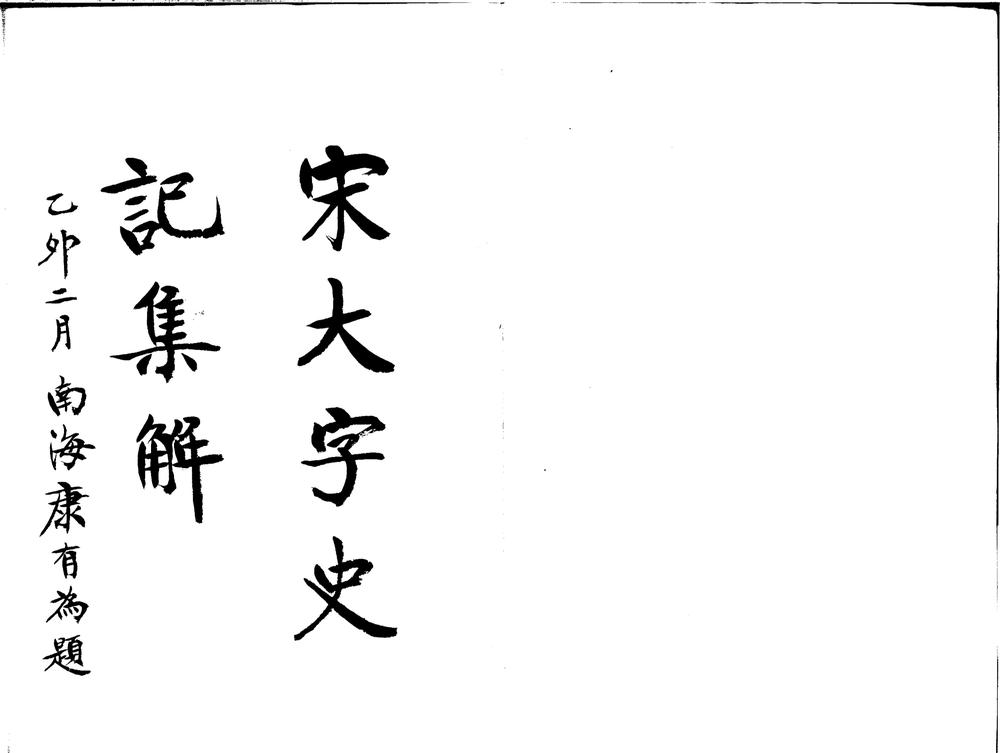 宋大字史
記集解
乙卯二月南海康有為題